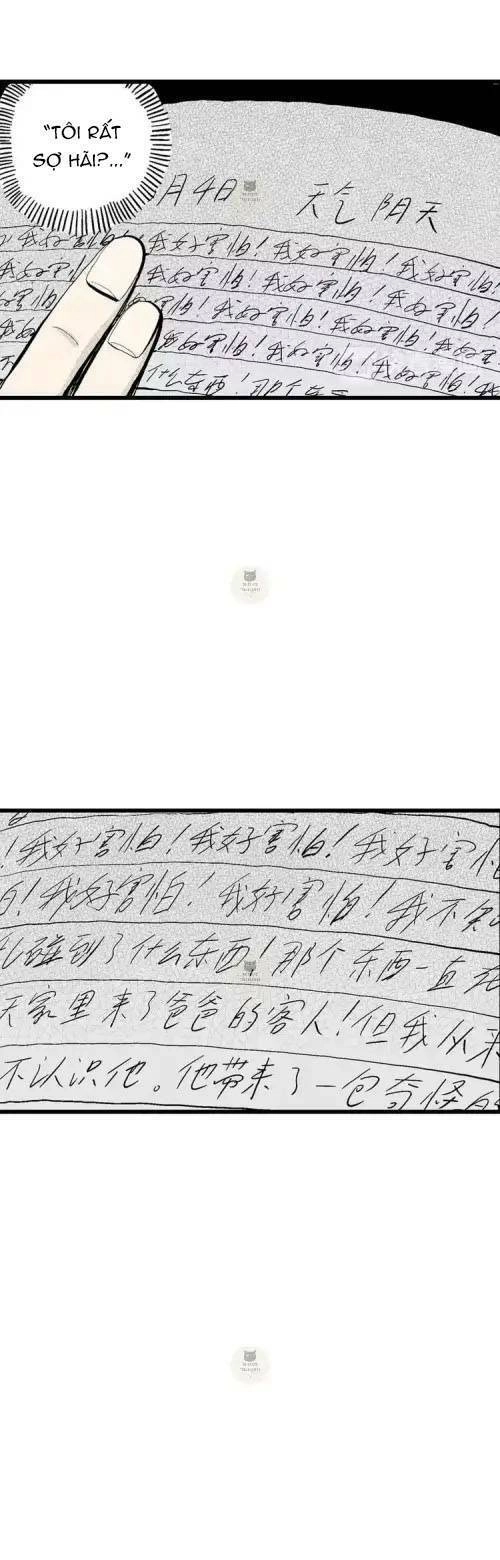 "TÔI RẤT
SỢ HÃI?..."
月4日 天气 阴天
我好害怕！我好害怕！我好害怕！
我好害怕！我好害怕！我好害怕！
我好害怕！我好害怕！我好害怕！
我好害怕！我好害怕！我好害怕！
什么东西！那个东
！我好害怕！我好害怕！我好害
怕！我好害怕！我好害怕！我不知
碰到了什么东西！那个东西一直在
天家里来了爸爸的客人！但我从来
不认识他。他带来了一包奇怪的